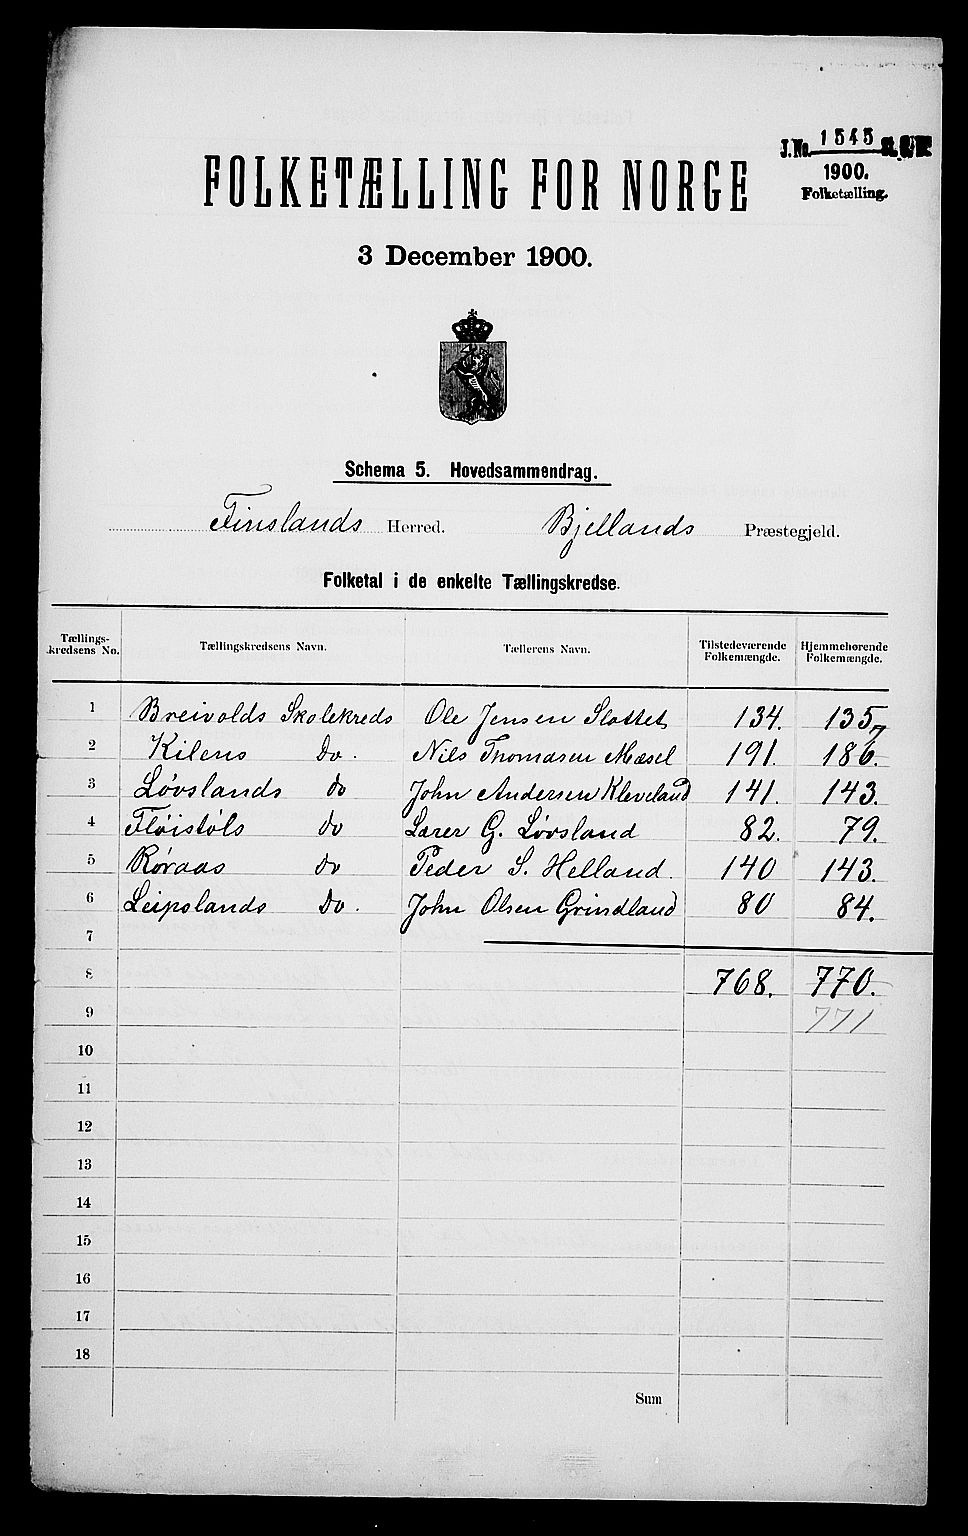 J.No. 1545
1900.
Folketælling.
FOLKETÆLLING FOR NORGE
3 December 1900.
Schema 5. Hovedsammendrag.
Finslands Herred. Bjellands Præstegjeld.
Folketal i de enkelte Tællingskredse.
Tællings-kredsens No. Tællingskredsens Navn. Tællerens Navn. Tilstedeværende Folkemængde. Hjemmehørende Folkemængde.
1 Breivolds Skolekreds Ole Jensen Slottet 134. 135
2 Kilens Do. Nils Thomasen Mæsel 191. 186. 7
3 Løvslands do John Andersen Kleveland 141. 143.
4 Fløistøls do Lærer G. Løvsland 82. 79.
5 Røraas do Peder S. Helland. 140 143.
6 Leipslands Do. John Olsen Grindland 80 84.
7
8 768. 770.
9 771
10
11
12
13
14
15
16
17
18
Sum